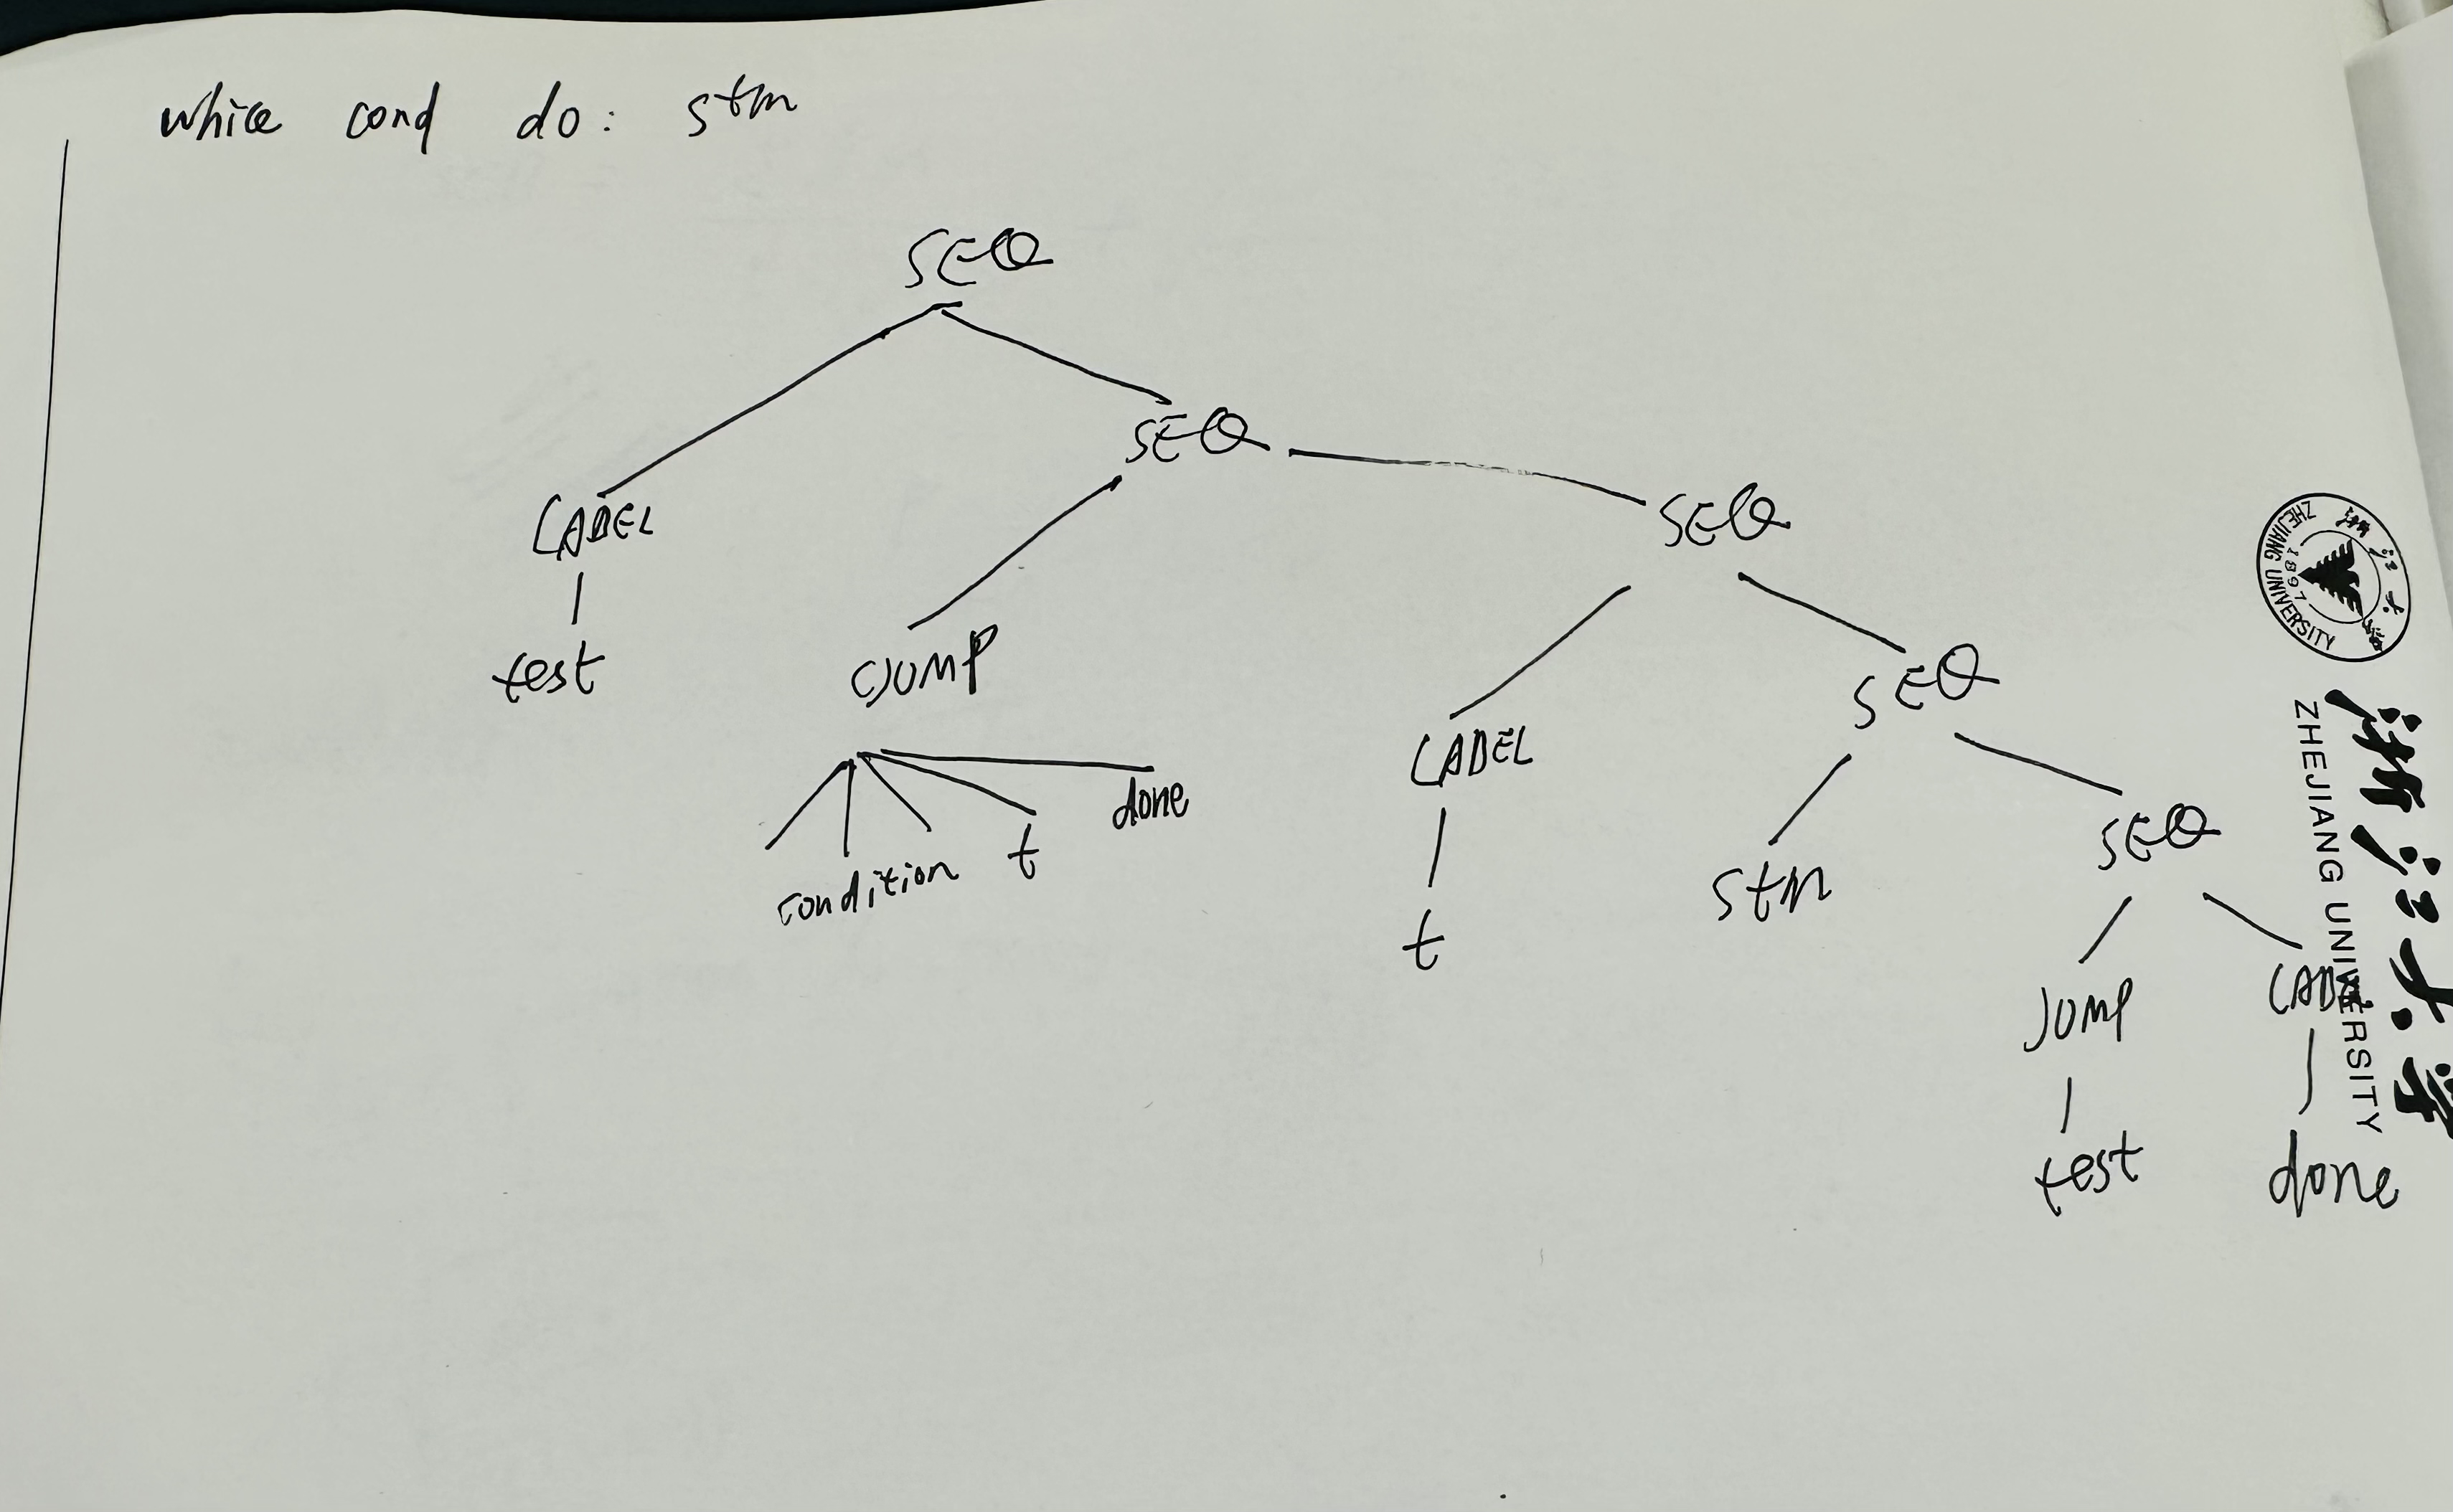 while cond do: stm
SEQ
SEQ
SEQ
LABEL
test
CJUMP
condition
t
done
LABEL
t
SEQ
stm
SEQ
JUMP
test
LABEL
done
浙江大学
ZHEJIANG UNIVERSITY
1897
浙江大学
ZHEJIANG UNIVERSITY